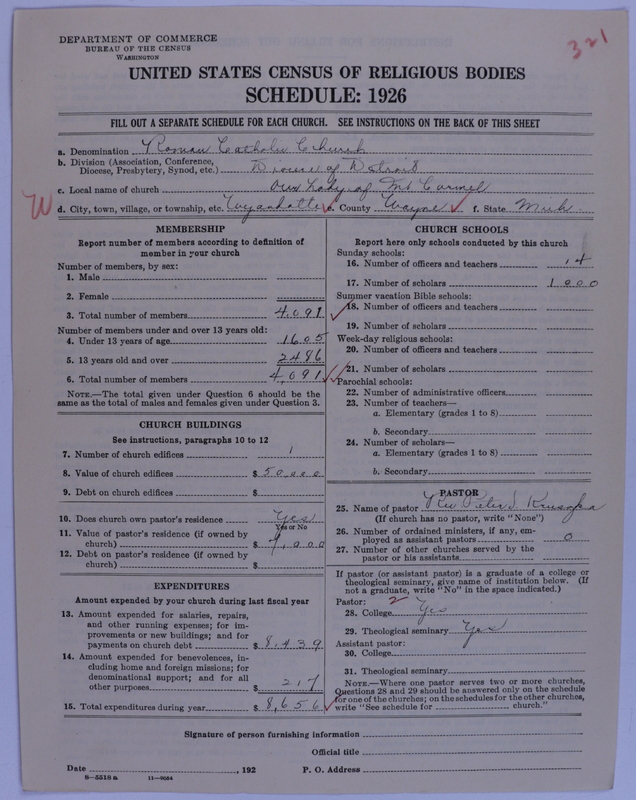 DEPARTMENT OF COMMERCE
BUREAU OF THE CENSUS
WASHINGTON
321
UNITED STATES CENSUS OF RELIGIOUS BODIES
SCHEDULE: 1926
FILL OUT A SEPARATE SCHEDULE FOR EACH CHURCH. SEE INSTRUCTIONS ON THE BACK OF THIS SHEET
a. Denomination Roman Catholic Church
b. Division (Association, Conference, Diocese, Presbytery, Synod, etc.) Diocese of Detroit
c. Local name of church Our Lady of Mt Carmel
W d. City, town, village, or township, etc. Wyandotte e. County Wayne f. State Mich
MEMBERSHIP
Report number of members according to definition of
member in your church
Number of members, by sex:
1. Male
2. Female
3. Total number of members 4,091
Number of members under and over 13 years old:
4. Under 13 years of age 1605
5. 13 years old and over 2486
6. Total number of members 4,091
NOTE.—The total given under Question 6 should be the
same as the total of males and females given under Question 3.
CHURCH BUILDINGS
See instructions, paragraphs 10 to 12
7. Number of church edifices 1
8. Value of church edifices $ 50,000
9. Debt on church edifices $
10. Does church own pastor's residence Yes
Yes or No
11. Value of pastor's residence (if owned by
church) $ 9,000
12. Debt on pastor's residence (if owned by
church) $
EXPENDITURES
Amount expended by your church during last fiscal year
13. Amount expended for salaries, repairs,
and other running expenses; for im-
provements or new buildings; and for
payments on church debt $ 8,439
14. Amount expended for benevolences, in-
cluding home and foreign missions; for
denominational support; and for all
other purposes 217
15. Total expenditures during year $ 8,656
CHURCH SCHOOLS
Report here only schools conducted by this church
Sunday schools:
16. Number of officers and teachers 14
17. Number of scholars 1000
Summer vacation Bible schools:
18. Number of officers and teachers
19. Number of scholars
Week-day religious schools:
20. Number of officers and teachers
21. Number of scholars
Parochial schools:
22. Number of administrative officers
23. Number of teachers—
a. Elementary (grades 1 to 8)
b. Secondary
24. Number of scholars—
a. Elementary (grades 1 to 8)
b. Secondary
PASTOR
25. Name of pastor Rev Peter
(If church has no pastor, write "None")
26. Number of ordained ministers, if any, em-
ployed as assistant pastors 0
27. Number of other churches served by the
pastor or his assistants
If pastor (or assistant pastor) is a graduate of a college or
theological seminary, give name of institution below. (If
not a graduate, write "No" in the space indicated.)
Pastor: 2
28. College Yes
29. Theological seminary Yes
Assistant pastor:
30. College
31. Theological seminary
NOTE.—Where one pastor serves two or more churches,
Questions 28 and 29 should be answered only on the schedule
for one of the churches; on the schedules for the other churches,
write "See schedule for church."
Signature of person furnishing information
Official title
Date , 192 P. O. Address
8—5518a 11—9084